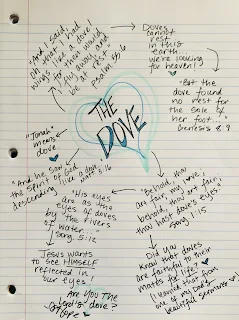 "And I said,
Oh that I had
wings like a dove!
for then would
I fly away and
be at rest."
Psalm 55:6
Doves
cannot
rest
in this
earth...
we're looking
for heaven!
"But the
dove found
no rest for
the sole of
her foot..."
Genesis 8:9
THE
DOVE
"Jonah"
means
dove
"And he saw
the Spirit of God
descending like a dove"
Matt 3:16
"His eyes
are as the
eyes of doves
by the rivers
of water..."
Song 5:12
Jesus wants
to see HIMSELF
reflected in
our eyes.
Are You The
Lord's dove?
"Behold, thou
art fair, my love;
behold, thou art fair;
thou hast doves' eyes"
Song 1:15
Did you
know that doves
are faithful to their
mates for life?
(I learned that from
one of my Dad's
beautiful sermons)